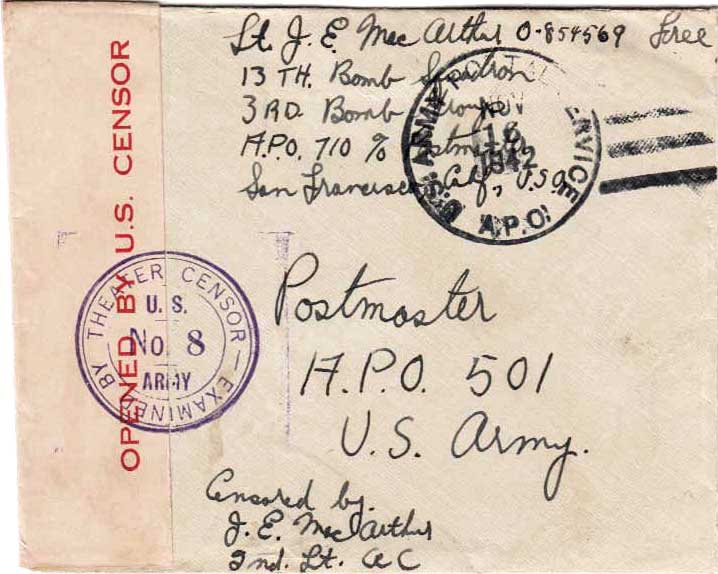 Lt. J. E. MacArthur O-854569 Free
13 TH. Bomb Squadron
3 RD. Bomb Group
A.P.O. 710 % Postmaster
San Francisco, Calif., U.S.A.
U.S. ARMY POSTAL SERVICE
NOV
16
1942
A.P.O.
OPENED BY U.S. CENSOR
EXAMINED BY THEATER CENSOR
U. S.
No. 8
ARMY
Postmaster
A.P.O. 501
U.S. Army.
Censored by.
J. E. MacArthur
2nd. Lt. AC